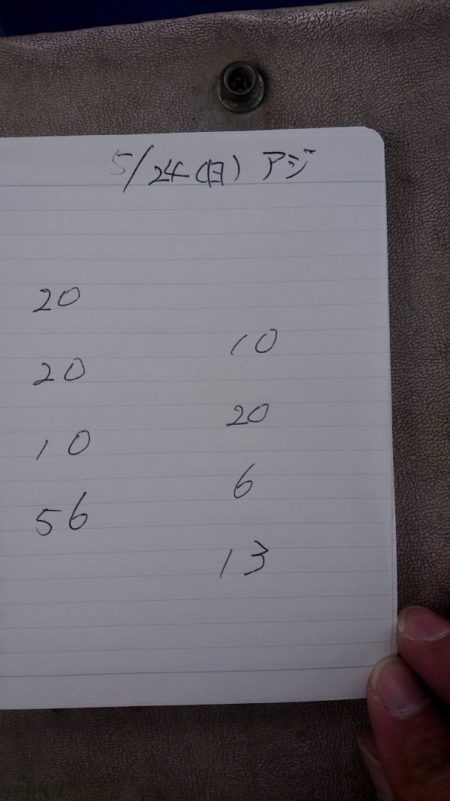 5/24(日) アジ
20
10
20
20
10
6
56
13